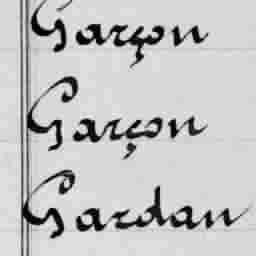 Garçon
Garçon
Gardan